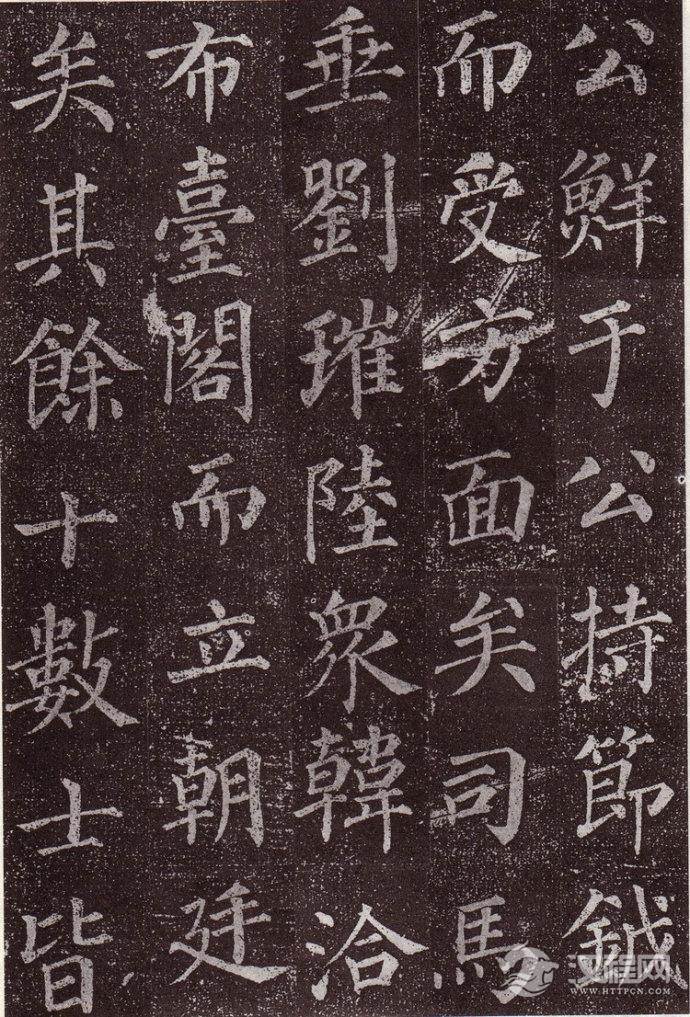 公鮮于公持節鉞
而受方面矣司馬
垂劉璀陸衆韓洽
布臺閣而立朝廷
矣其餘十數士皆
汉程网
WWW.HTTPCN.COM